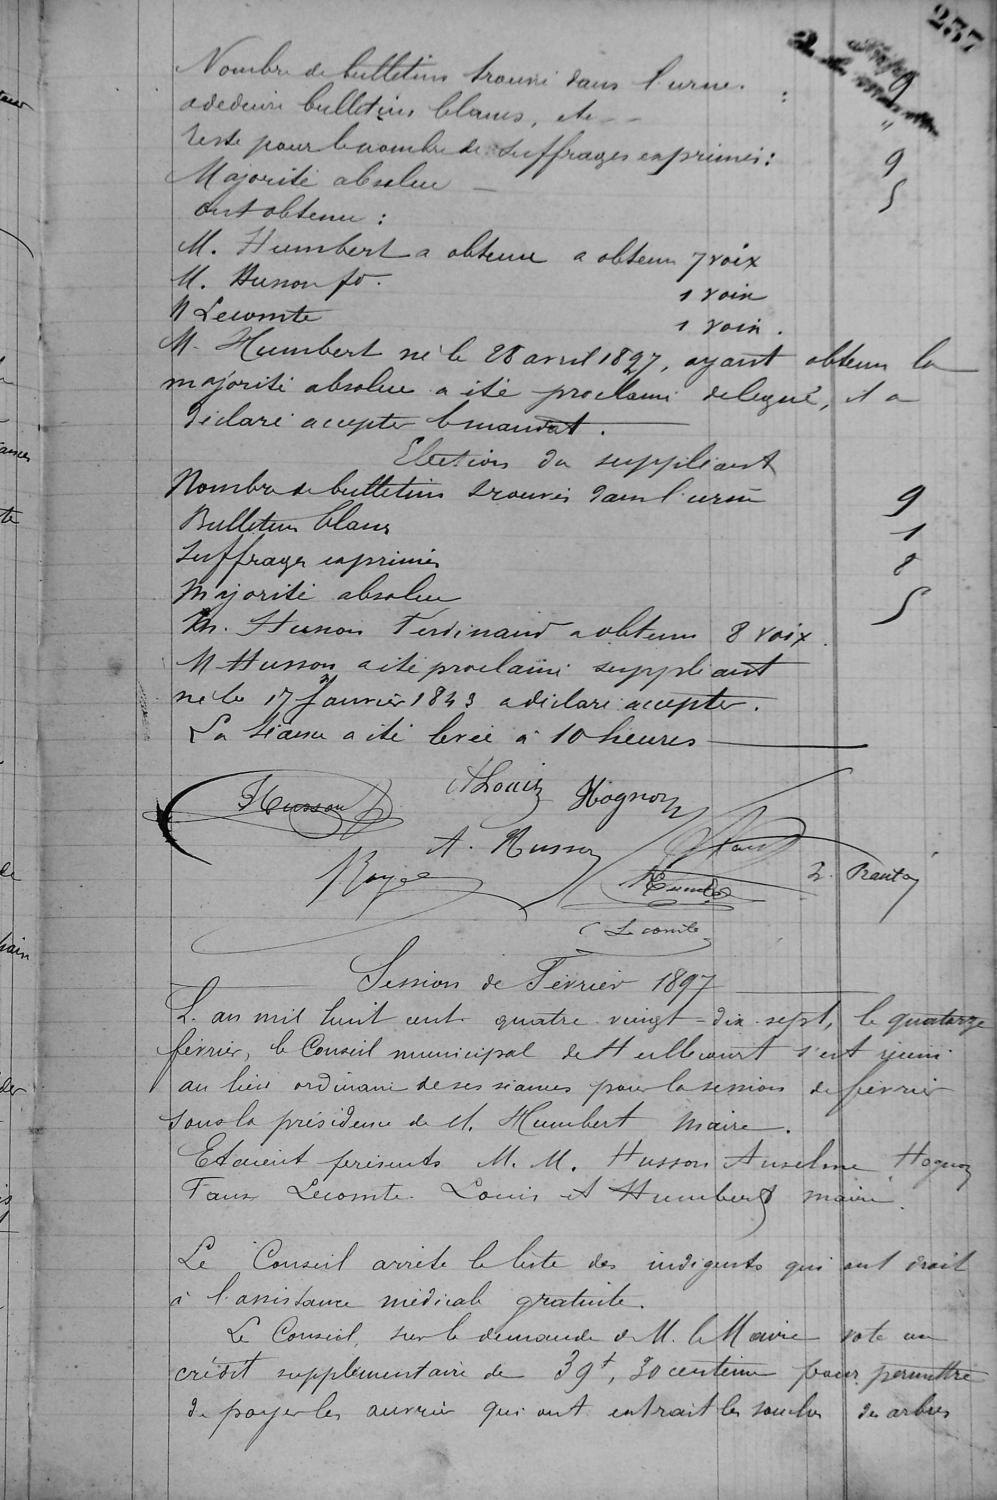 237
Nombre de bulletins trouvé dans l'urne : 9
a deduire bulletins blancs, etc -- "
reste pour le nombre de suffrages exprimés : 9
Majorité absolue — 5
ont obtenu :
M. Humbert a obtenu a obtenu 7 voix
M. Husson fd. 1 voix
M Lecomte 1 voix.
M. Humbert né le 28 avril 1827, ayant obtenu la
majorité absolue a été proclamé delegué, il a
déclaré accepter le mandat.
Election du suppléant
Nombre de bulletins trouvés dans l'urne 9
Bulletins blancs 1
Suffrages exprimés 8
Majorité absolue 5
M. Husson Ferdinand a obtenu 8 voix.
M Husson a été proclamé suppléant
né le 17 Janvier 1843 a déclaré accepter.
La séance a été levée à 10 heures
Husson A Louis Hognon
A. Husson
Royer Humbert
Lecomte
Session de Février 1897
L'an mil huit cent quatre vingt-dix-sept, le quatorze
février, le Conseil municipal de s'est réuni
au lieu ordinaire de ses séances pour la session de février
sous la présidence de M. Humbert Maire.
Etaient présents M. M. Husson Anselme Hognon
Faux Lecomte Louis et Humbert maire.
Le Conseil arrête la liste des indigents qui ont droit
à l'assistance médicale gratuite.
Le Conseil, sur la demande de M. le Maire vote un
crédit supplémentaire de 39f, 30 centimes pour permettre
de payer les ouvriers qui ont extrait les souches des arbres